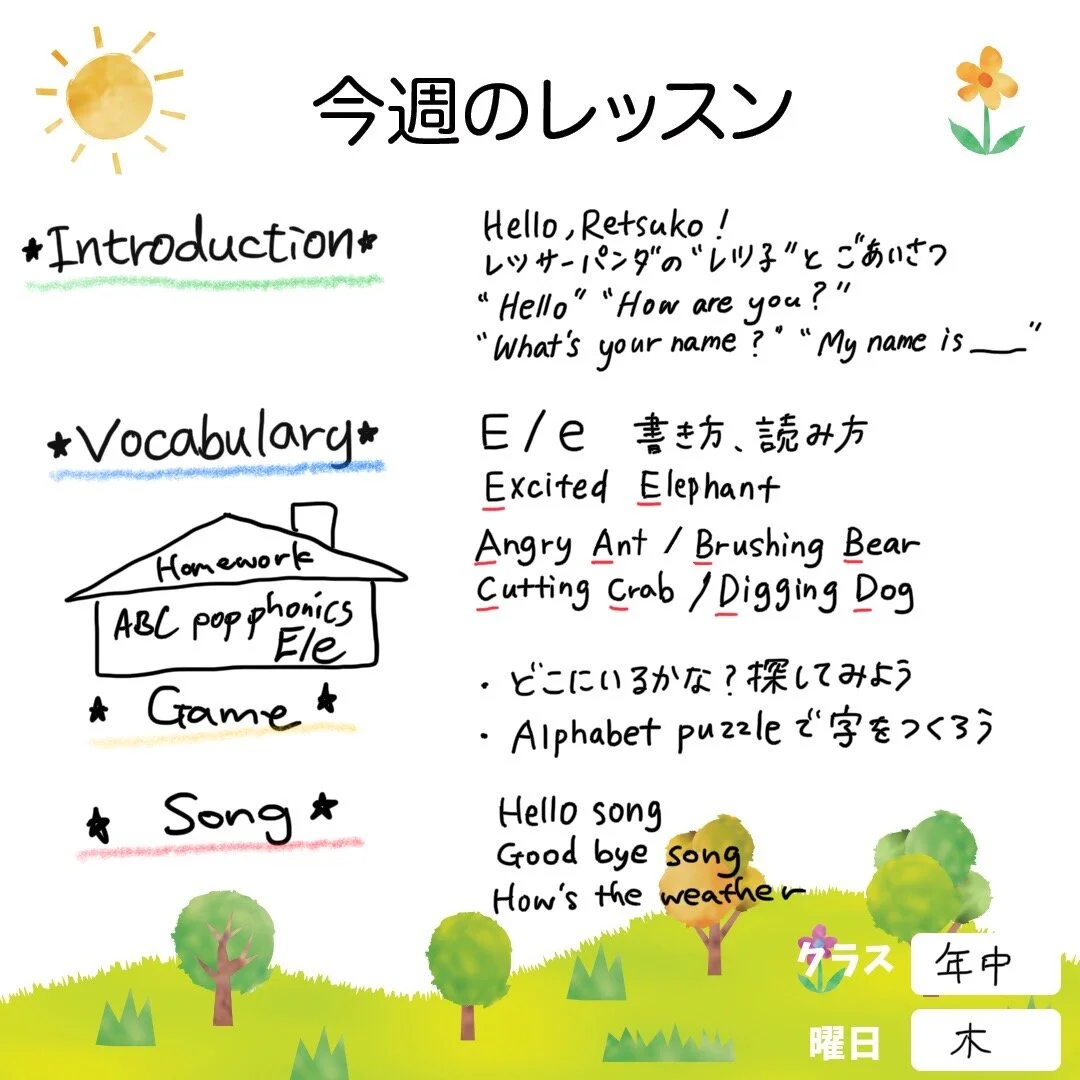 今週のレッスン
★Introduction★
Hello, Retsuko!
レッサーパンダの"レツ子"とごあいさつ
"Hello" "How are you?"
"What's your name?" "My name is ___"
★Vocabulary★
E/e 書き方、読み方
Excited Elephant
Angry Ant / Brushing Bear
Cutting Crab / Digging Dog
Homework
ABC pop phonics
E/e
★ Game ★
・どこにいるかな?探してみよう
・Alphabet puzzleで字をつくろう
★ Song ★
Hello song
Good bye song
How's the weather
クラス 年中
曜日 木